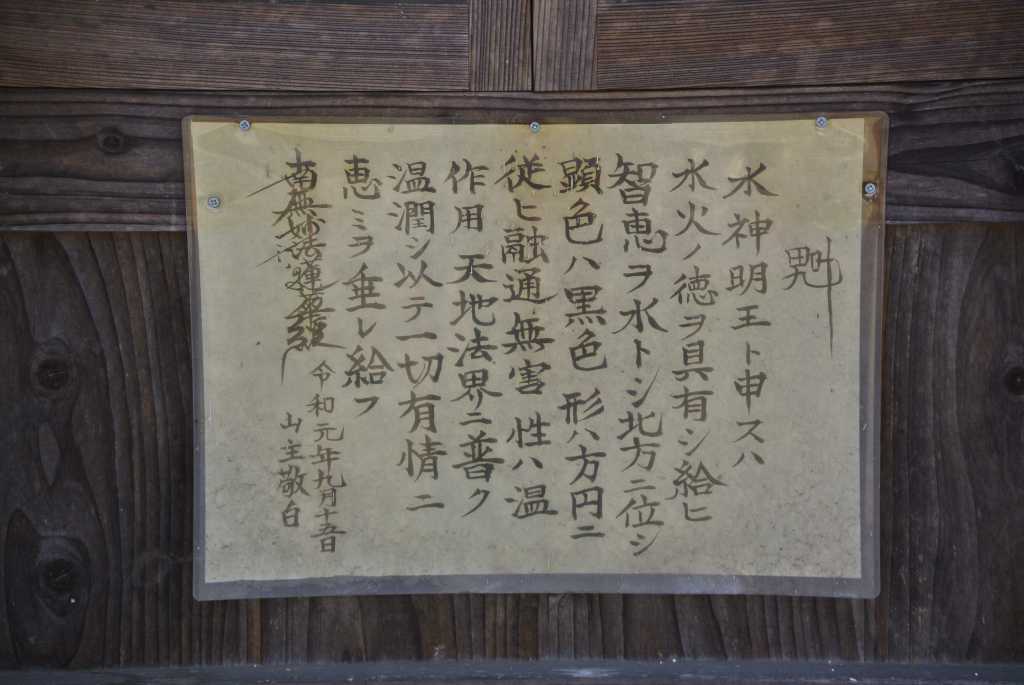 水神明王ト申スハ
水火ノ徳ヲ具有シ給ヒ
智恵ヲ水トシ北方ニ位シ
顕色ハ黒色 形ハ方円ニ
従ヒ融通無害 性ハ温
作用 天地法界ニ普ク
温潤シ以テ一切有情ニ
恵ミヲ垂レ給フ
南無妙法蓮華経
令和元年九月十五日
山主敬白